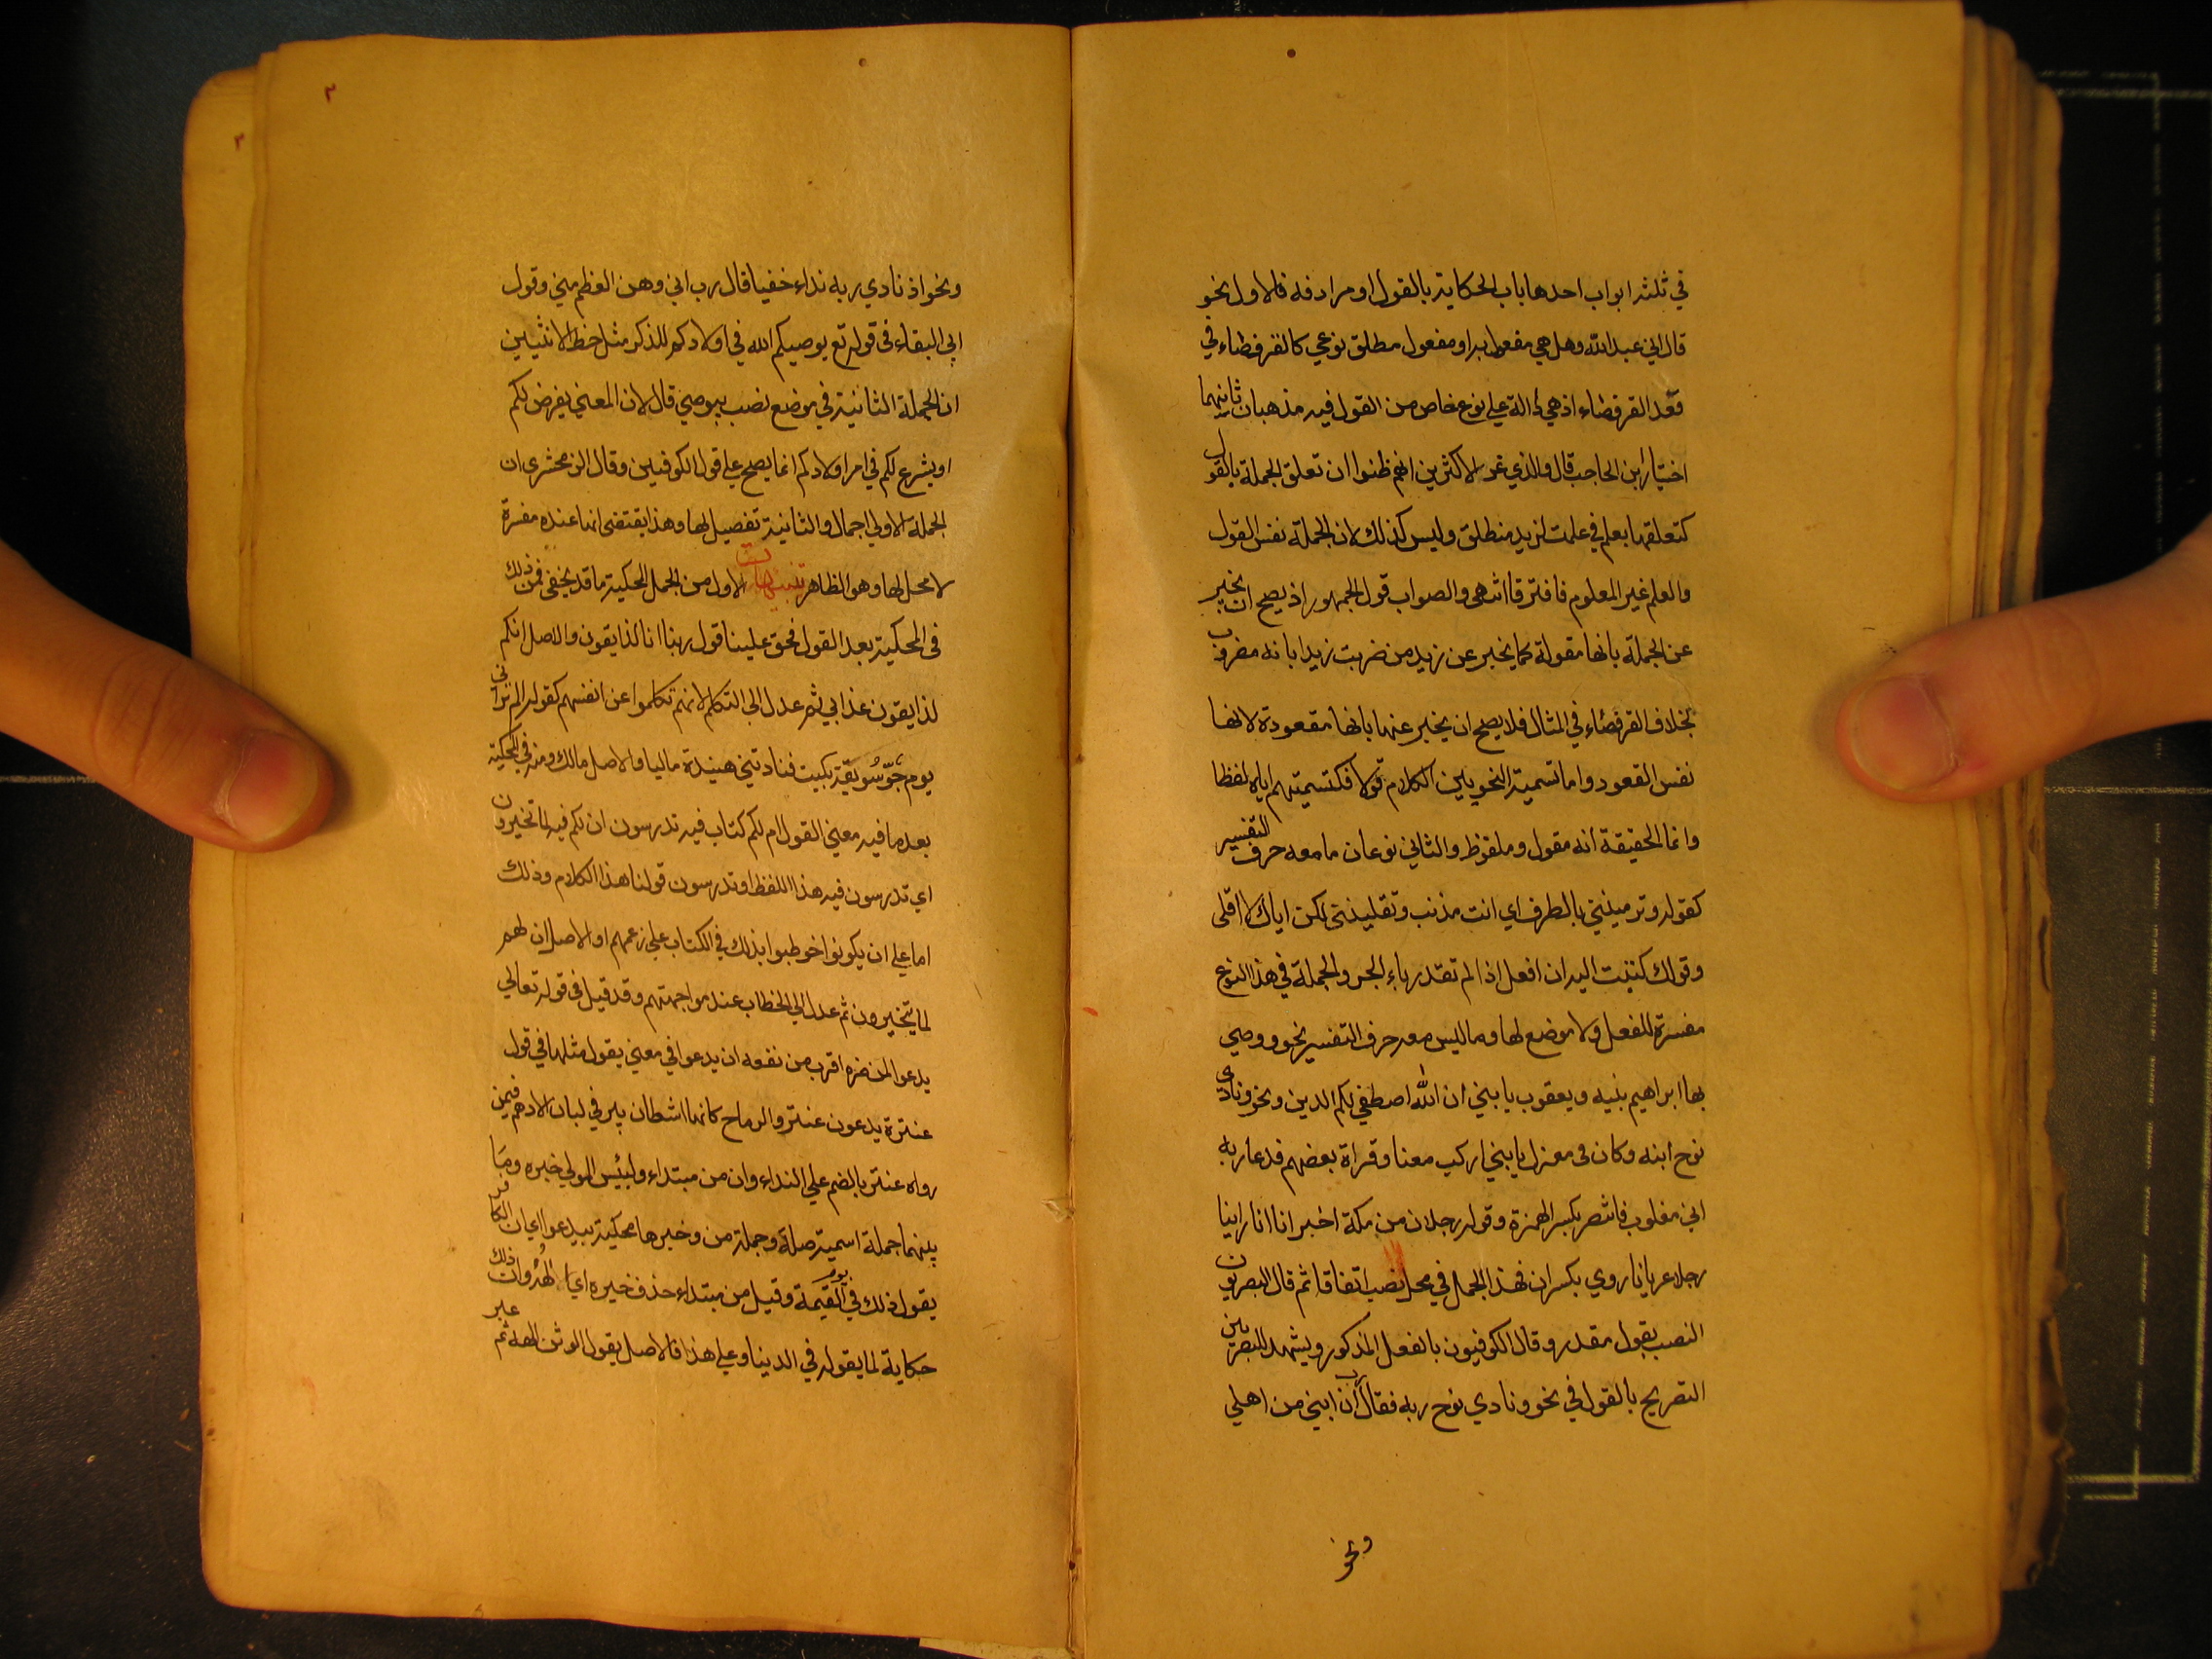 في ثلثة ابواب احدها باب الحكاية بالقول او مرادفه فالاول نحو
قال اني عبد الله وهل هي مفعول به او مفعول مطلق نوعي كالقرفصاء في
قعد القرفصاء اذ هي دالة على نوع خاص من القول فيه مذهبان ثانيهما
اختيار ابن الحاجب قال والذي غر الاكثرين انهم ظنوا ان تعلق الجملة بالقول
كتعلقها بعلم في علمت لزيد منطلق وليس كذلك لان الجملة نفس القول
والعلم غير المعلوم فافترقا انتهى والصواب قول الجمهور اذ يصح ان يخبر
عن الجملة بانها مقولة كما يخبر عن زيد من ضربت زيدا بانه مضروب
بخلاف القرفصاء في المثال فلا يصح ان يخبر عنها بانها مقعودة لانها
نفس القعود واما تسمية النحويين الكلام قولا فكتسميتهم اياه لفظا
وانما الحقيقة انه مقول وملفوظ والثاني نوعان ما معه حرف التفسير
كقوله وترمينني بالطرف اي انت مذنب وتقلينني لكن اياك لا اقلى
وقولك كتبت اليه ان افعل اذا لم تقدر باء الجر والجملة في هذا النوع
مفسرة للفعل ولا موضع لها وما ليس معه حرف التفسير نحو ووصي
بها ابراهيم بنيه ويعقوب يا بني ان الله اصطفي لكم الدين ونحو ونادى
نوح ابنه وكان في معزل يا بني اركب معنا وقراة بعضهم فدعا ربه
اني مغلوب فانتصر بكسر الهمزة وقوله رجلان من مكة اخبرانا انا راينا
رجلا عريانا روي بكسر ان فهذا الجمل في محل نصب اتفاقا ثم قال البصريون
النصب بقول مقدر وقال الكوفيون بالفعل المذكور ويشهد للبصريين
التصريح بالقول في نحو ونادي نوح ربه فقال رب ان ابني من اهلي
ونحو
٢
٣
ونحو اذ نادي ربه نداء خفيا قال رب اني وهن العظم مني وقول
ابي البقاء في قوله تع يوصيكم الله في اولادكم للذكر مثل حظ الانثيين
ان الجملة الثانية في موضع نصب بيوصي قال لان المعني يفرض لكم
او يشرع لكم في امر اولادكم انما يصح علي قول الكوفيين وقال الزمخشري ان
الجملة الاولي اجمال والثانية تفصيل لها وهذا يقتضى انها عنده مفسرة
لا محل لها وهو الظاهر تنبيهات الاول من الجمل المحكية ما قد يخفى فمن ذلك
في المحكية بعد القول فحق علينا قول ربنا انا لذايقون والاصل انكم
لذايقون عذابي ثم عدل الى التكلم لانهم تكلموا عن انفسهم كقوله الم ترانى
يوم جَوّ سُوَيقَة بكيت فنادتني هنيدة ماليا والاصل مالك ومنه في المحكية
بعد ما فيه معني القول ام لكم كتاب فيه تدرسون ان لكم فيه لما تخيرون
اي تدرسون فيه هذا اللفظ او تدرسون قولنا هذا الكلام وذلك
اما علي ان يكونوا خوطبوا بذلك في الكتاب علي زعمهم او الاصل ان لهم
لما يتخيرون ثم عدل الي الخطاب عند مواجهتهم وقد قيل في قوله تعالي
يدعوا لمن ضره اقرب من نفعه ان يدعوا في معني يقول مثلها في قول
عنترة يدعون عنتر والرماح كانها اشطان بير في لبان الادهم فيمن
رواه عنتر بالضم علي النداء وان من مبتداء ولبئس المولي خبره وما
بينهما جملة اسمية صلة وجملة من وخبرها محكية بيدعوا اي ان الكافر
يقول ذلك في يوم القيمة وقيل من مبتداء حذف خبره اي الهه وان ذلك
حكاية لما يقوله في الدينا وعلي هذا فالاصل يقول الوثن الهه ثم عبر